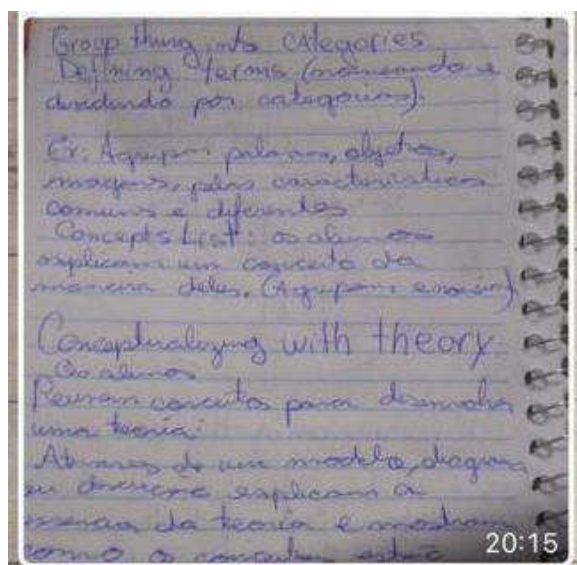 Groop thing into categories
Defining terms (nomeando e
dividindo por categorias).
Ex: Agrupam palavras, objetos,
imagens, pelas características
comuns e diferentes
Concepts List: os alunos
explicam um conceito da
maneira deles. (Agrupam e
Conceptualizing with theory
Os alunos
Reunem conceitos para desenvolver
uma teoria:
Através de um modelo, diagrama
ou explicam a
da teoria e mostram
como os conceitos estão
20:15